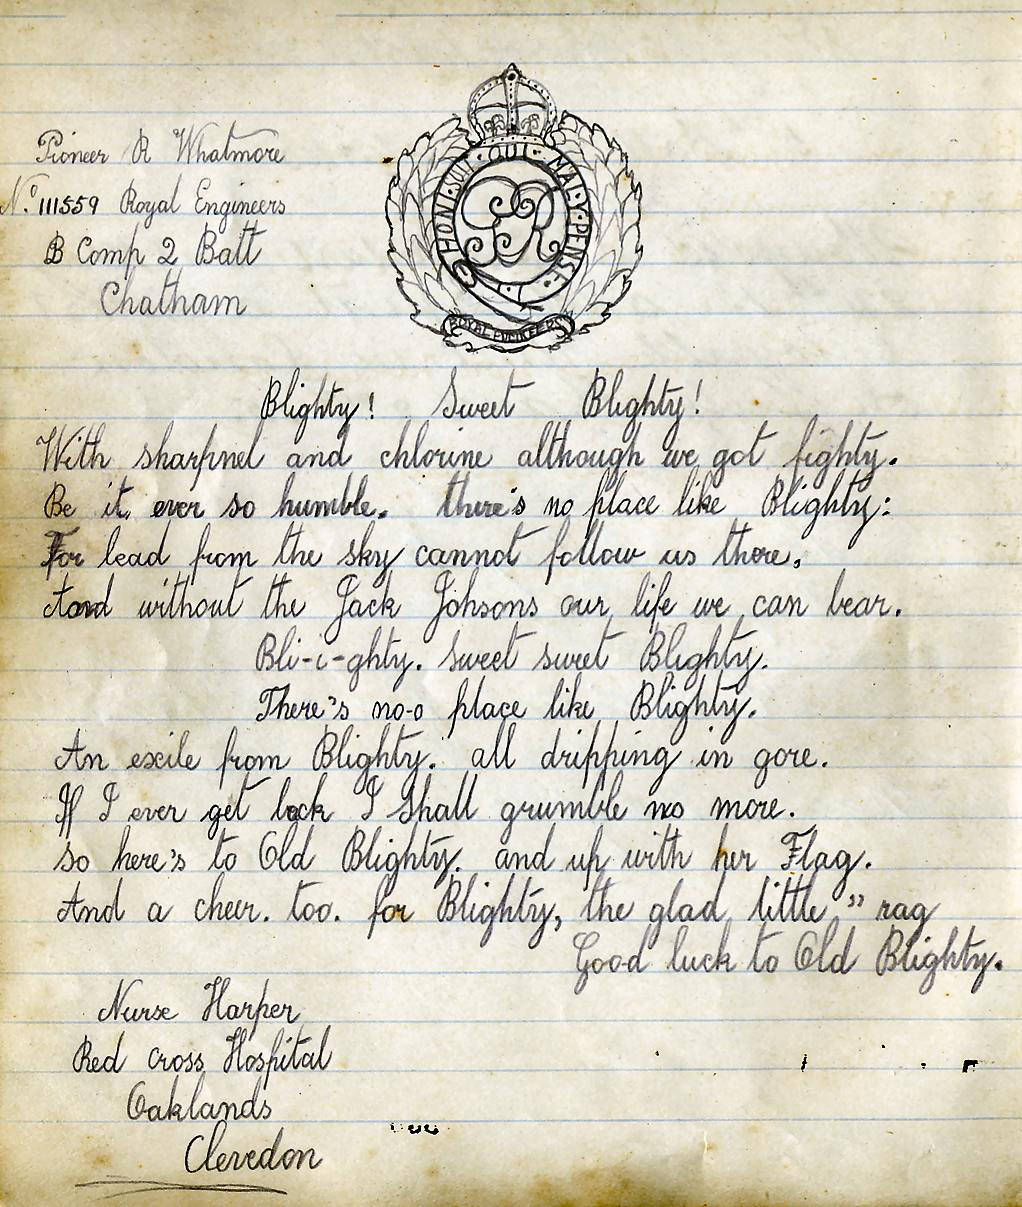 Pioneer R Whatmore
No. 111559 Royal Engineers
B Comp 2 Batt
Chatham
HONI·SOIT·QUI·MAL·Y·PENSE·
GR
ROYAL ENGINEERS
Blighty! Sweet Blighty!
With sharpnel and chlorine although we got fighty.
Be it, ever so humble. there's no place like Blighty:
For lead from the sky cannot follow us there,
And without the Jack Johsons our life we can bear.
Bli-i-ghty. sweet sweet Blighty.
There's no-o place like Blighty.
An exile from Blighty. all dripping in gore.
If I ever get back I shall grumble no more.
So here's to Old Blighty. and up with her Flag.
And a cheer. too. for Blighty, the glad little " rag
Good luck to Old Blighty.
Nurse Harper
Red Cross Hospital
Oaklands
Clevedon